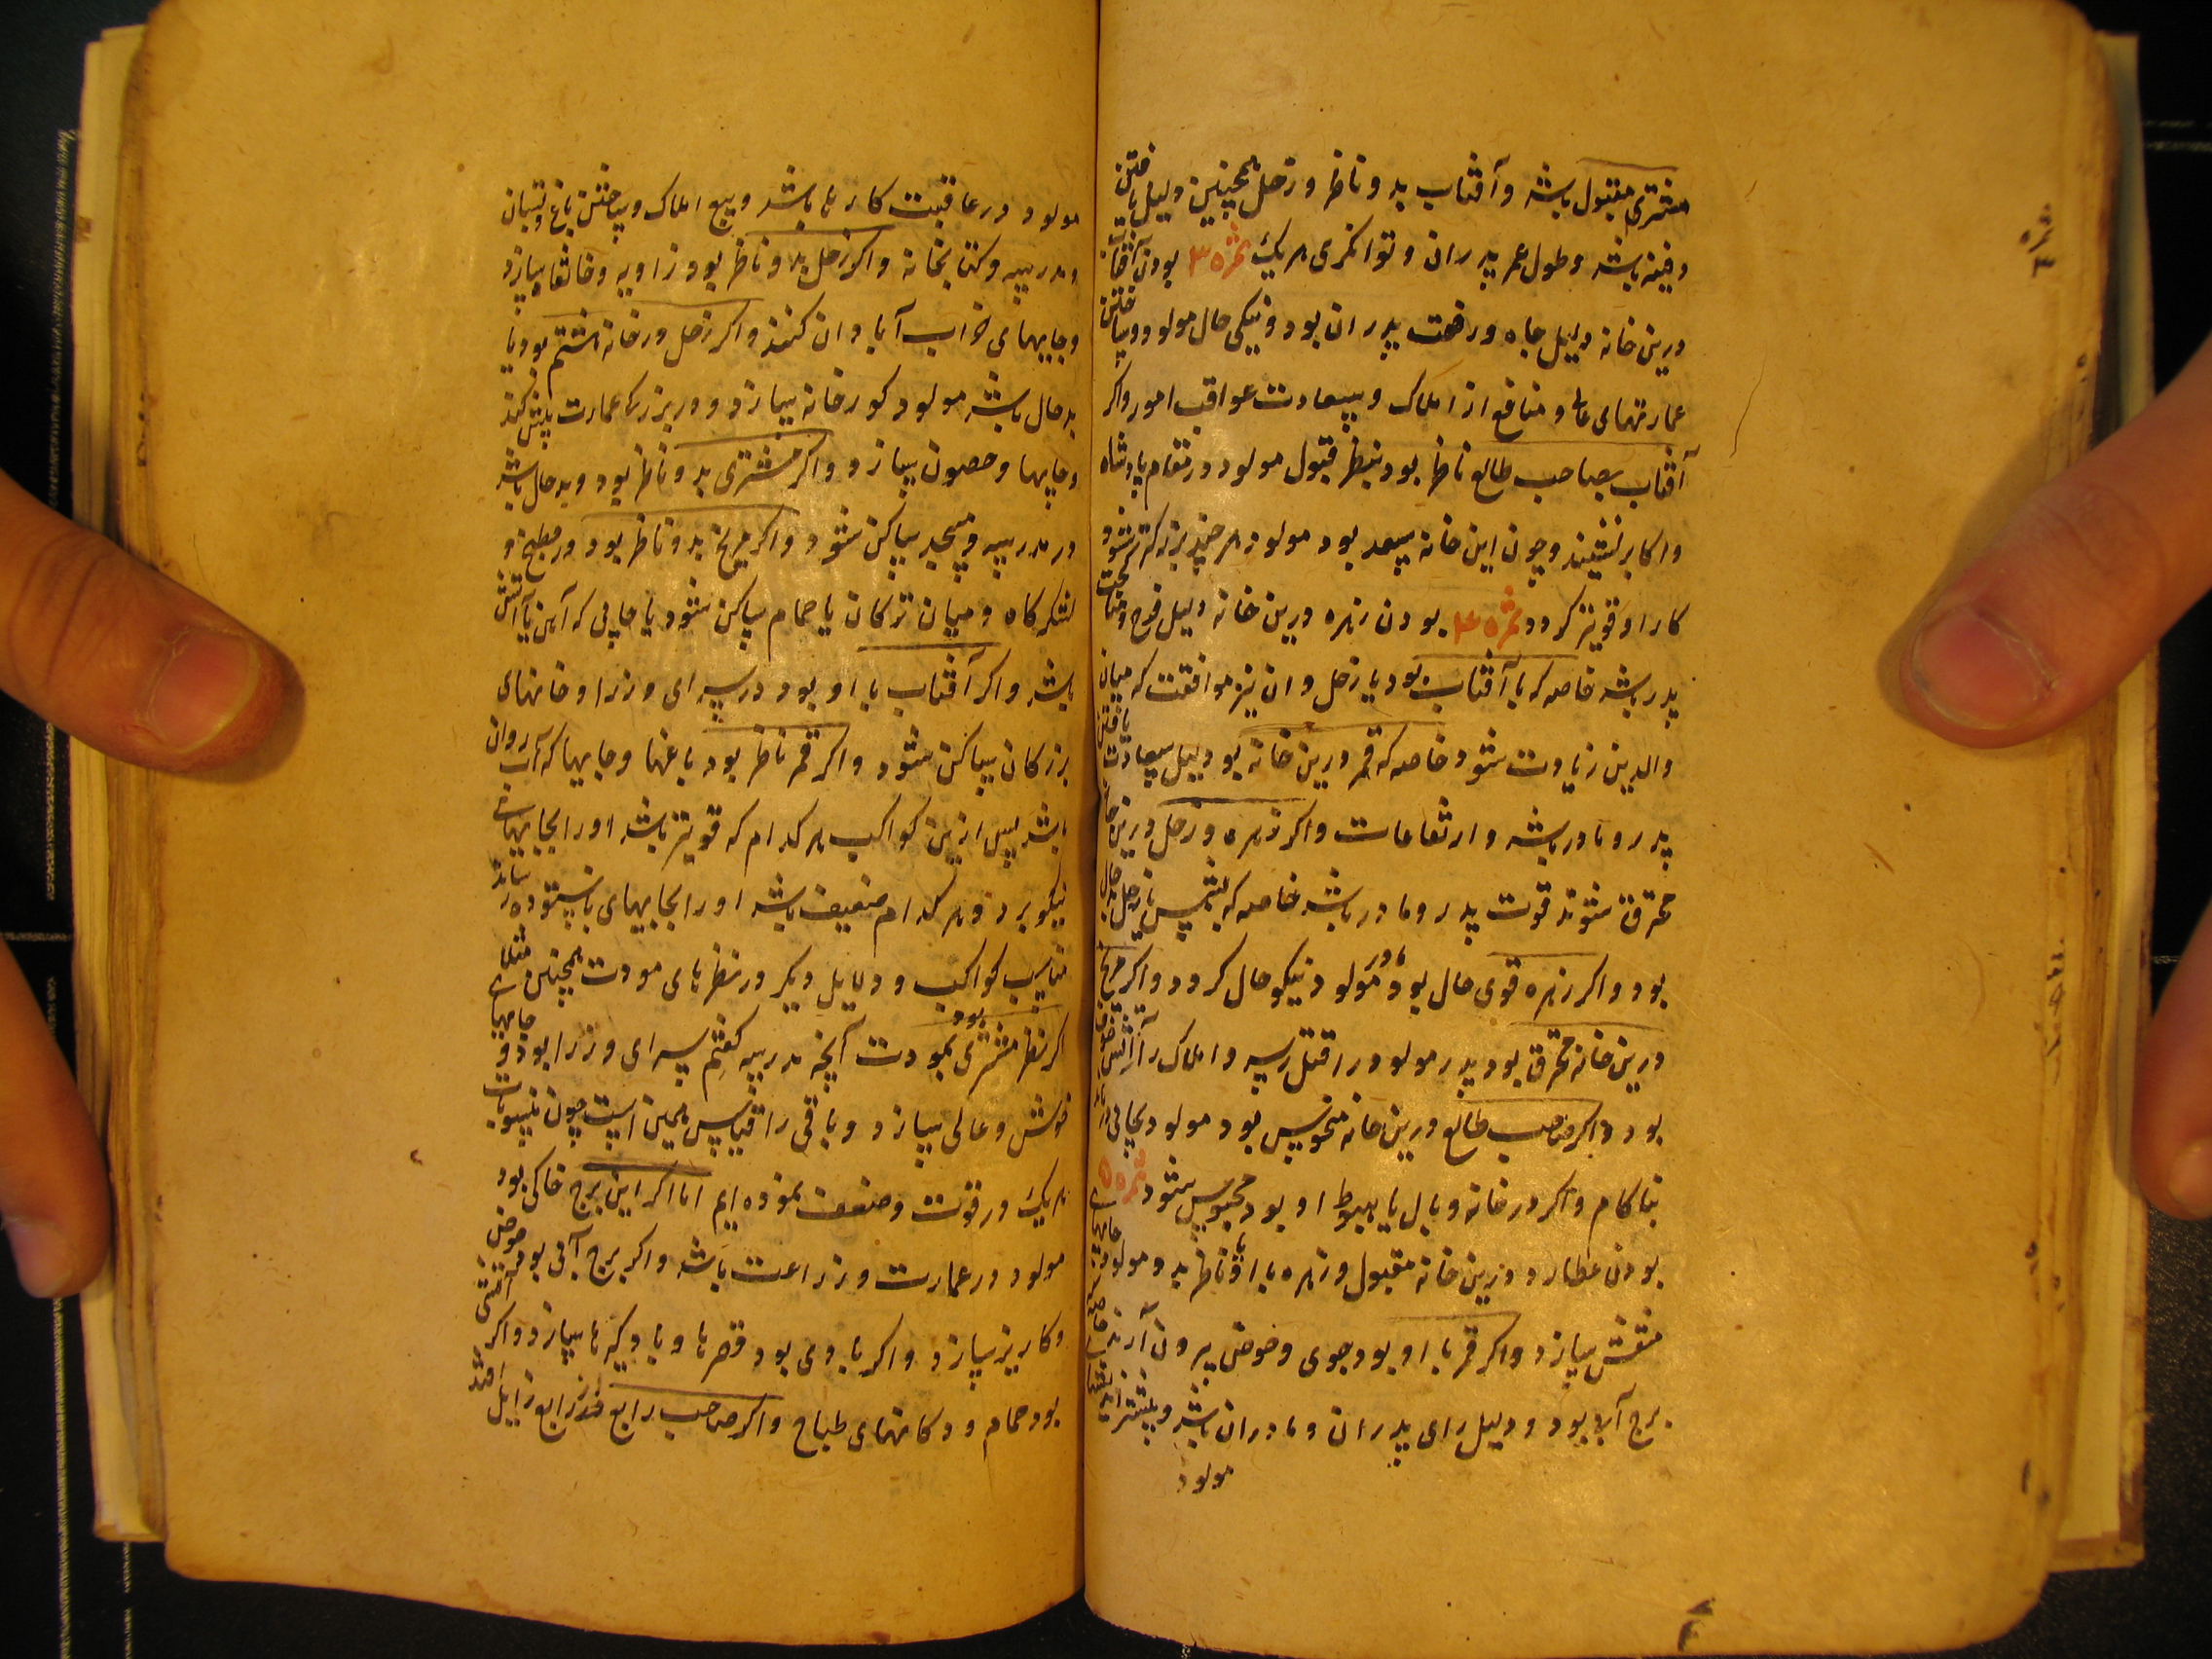 مشتری مقبول باشد و آفتاب بدو ناظر و زحل همچنین دلیل یافتن
دفینه باشد و طول عمر پدران و توانکری هر یک ثمره ۳ بودن آفتاب
درین خانه دلیل جاه و رفعت پدران بود و نیکی حال مولود و ساختن
عمارتهای عالی و منافع از املاک و سعادت عواقب امور و اکر
آفتاب بصاحب طالع ناظر بود بنظر قبول مولود در مقام پادشاه
و اکابر نشیند و چون این خانه سعد بود مولود هر چند بزرکتر شود
کار او قویتر کردد ثمره ۴ بودن زهره درین خانه دلیل فرح
پدر باشد خاصه که با آفتاب بود یا زحل و ان نیز موافقت که میان
والدین زیادت شود خاصه که قمر درین خانه بود دلیل سعادت یافتن
پدر و مادر باشد و ارتفاعات و اکر زهره و زحل درین
محترق شوند قوت پدر و مادر باشد خاصه که شمس یا زحل
بود و اکر زهره قوی حال بود مادر و مولود نیکو حال کردد و اکر مریخ
درین خانه محترق بود پدر مولود را قتل رسد و املاک را آتش
بود و اکر صاحب طالع درین خانه منحوس بود مولود بجائی
بناکام و اکر در خانه وبال یا هبوط او بود محبوس شود ثمره ۵
بودن عطارد درین خانه مقبول و زهره با او یا ناظر بدو مولود جایهای
منقش سازد و اکر قمر با او بود جوی و حوض بیرون آرند خاصه
برج آبی بود و دلیل رای پدران و مادران باشد و بیشتر
مولود
مولود در عاقبت کارها باشد و بیع املاک و ساختن باغ و بستان
و مدرسه و کتابخانه و اکر زحل بدو ناظر بود زاویه و خانقاه سازد
و جایهای خراب آبادان کنند و اکر زحل در خانه هشتم بود یا
بدحال باشد مولود کورخانه سازد و در بزرکی عمارت بیش کند
و چاهها و حصون سازد و اکر مشتری بدو ناظر بود و بدحال باشد
در مدرسه و مسجد ساکن شود و اکر مریخ بدو ناظر بود در مطبخ و
لشکرکاه و میان ترکان یا حمام ساکن شود یا جایی که آهن یا آتش
باشد و اکر آفتاب با او بود در سرای وزرا و خانهای
بزرکان ساکن شود و اکر قمر ناظر بود باغها و جایها که آب روان
باشد پس ازین کواکب هر کدام که قویتر باشد او را بجایهای
نیکو برد و هر کدام ضعیف باشد او را بجایهای ناستوده رساند
مناسب کواکب و دلایل دیکر در نظرهای مودت همچنین مثلا
اکر نظر مشتری بمودت بود آنچه مدرسه کفتم سرای وزرا بود و جایهای
خوش و عالی سازد و باقی را قیاس همین است چون منسوبات
هر یک در قوت و ضعف نموده ایم اما اکر این برج خاکی بود
مولود در عمارت و زراعت باشد و اکر برج آبی بود حوض
و کاریز سازد و اکر بادی بود قصرها و بادکیرها سازد و اکر آتشی
بود حمام و دکانهای طباخ و اکر صاحب رابع از رابع زایل افتد